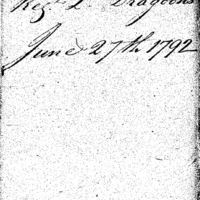 Regt L. Dragoons
June 27th 1792